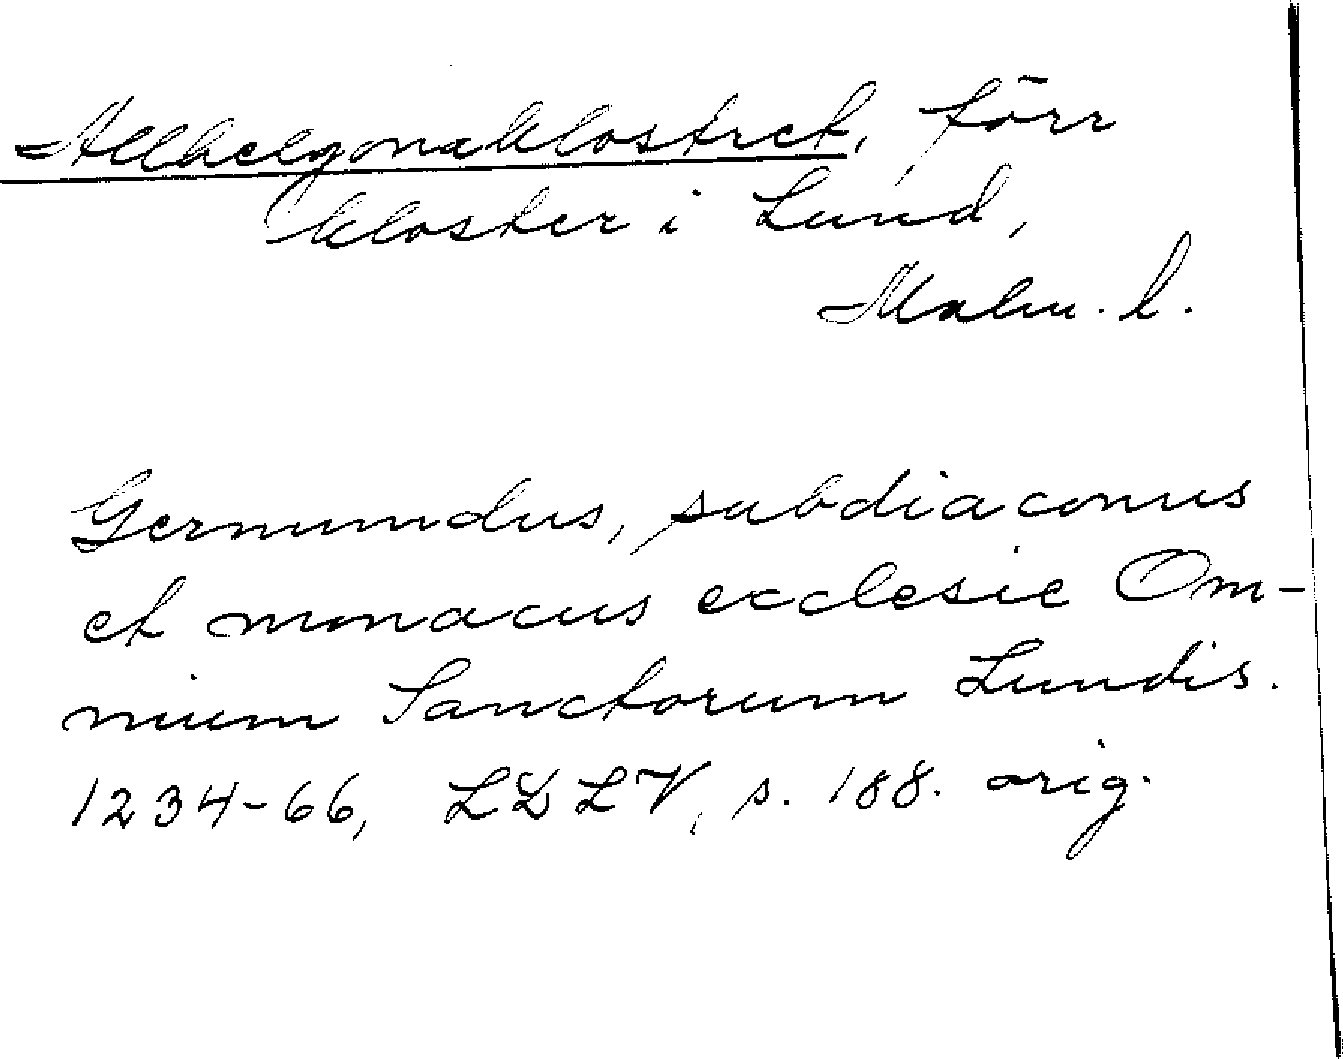 Allhelgonaklostret, förr
kloster i Lund,
Malm. l.
Germundus, subdiaconus
et monacus ecclesie Om-
nium Sanctorum Lundis.
1234-66, LDLV, s. 188. orig.